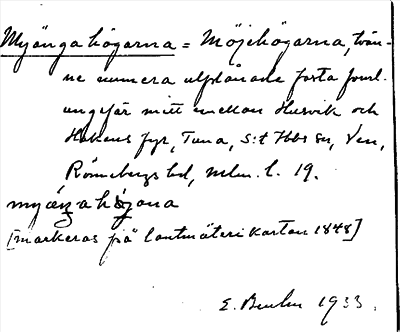 Myänga högarna = Möjehögarna, tvän-
ne numera utplånade forta forml.
ungefär mitt emellan Husvik och
Hakens fyr, Tuna, S:t Ibbs sn, Ven,
Rönnebergs hd, Mlm. l. 19.
myæŋahǫ́gona
[markeras på lantmäterikartan 1848]
E. 1933.